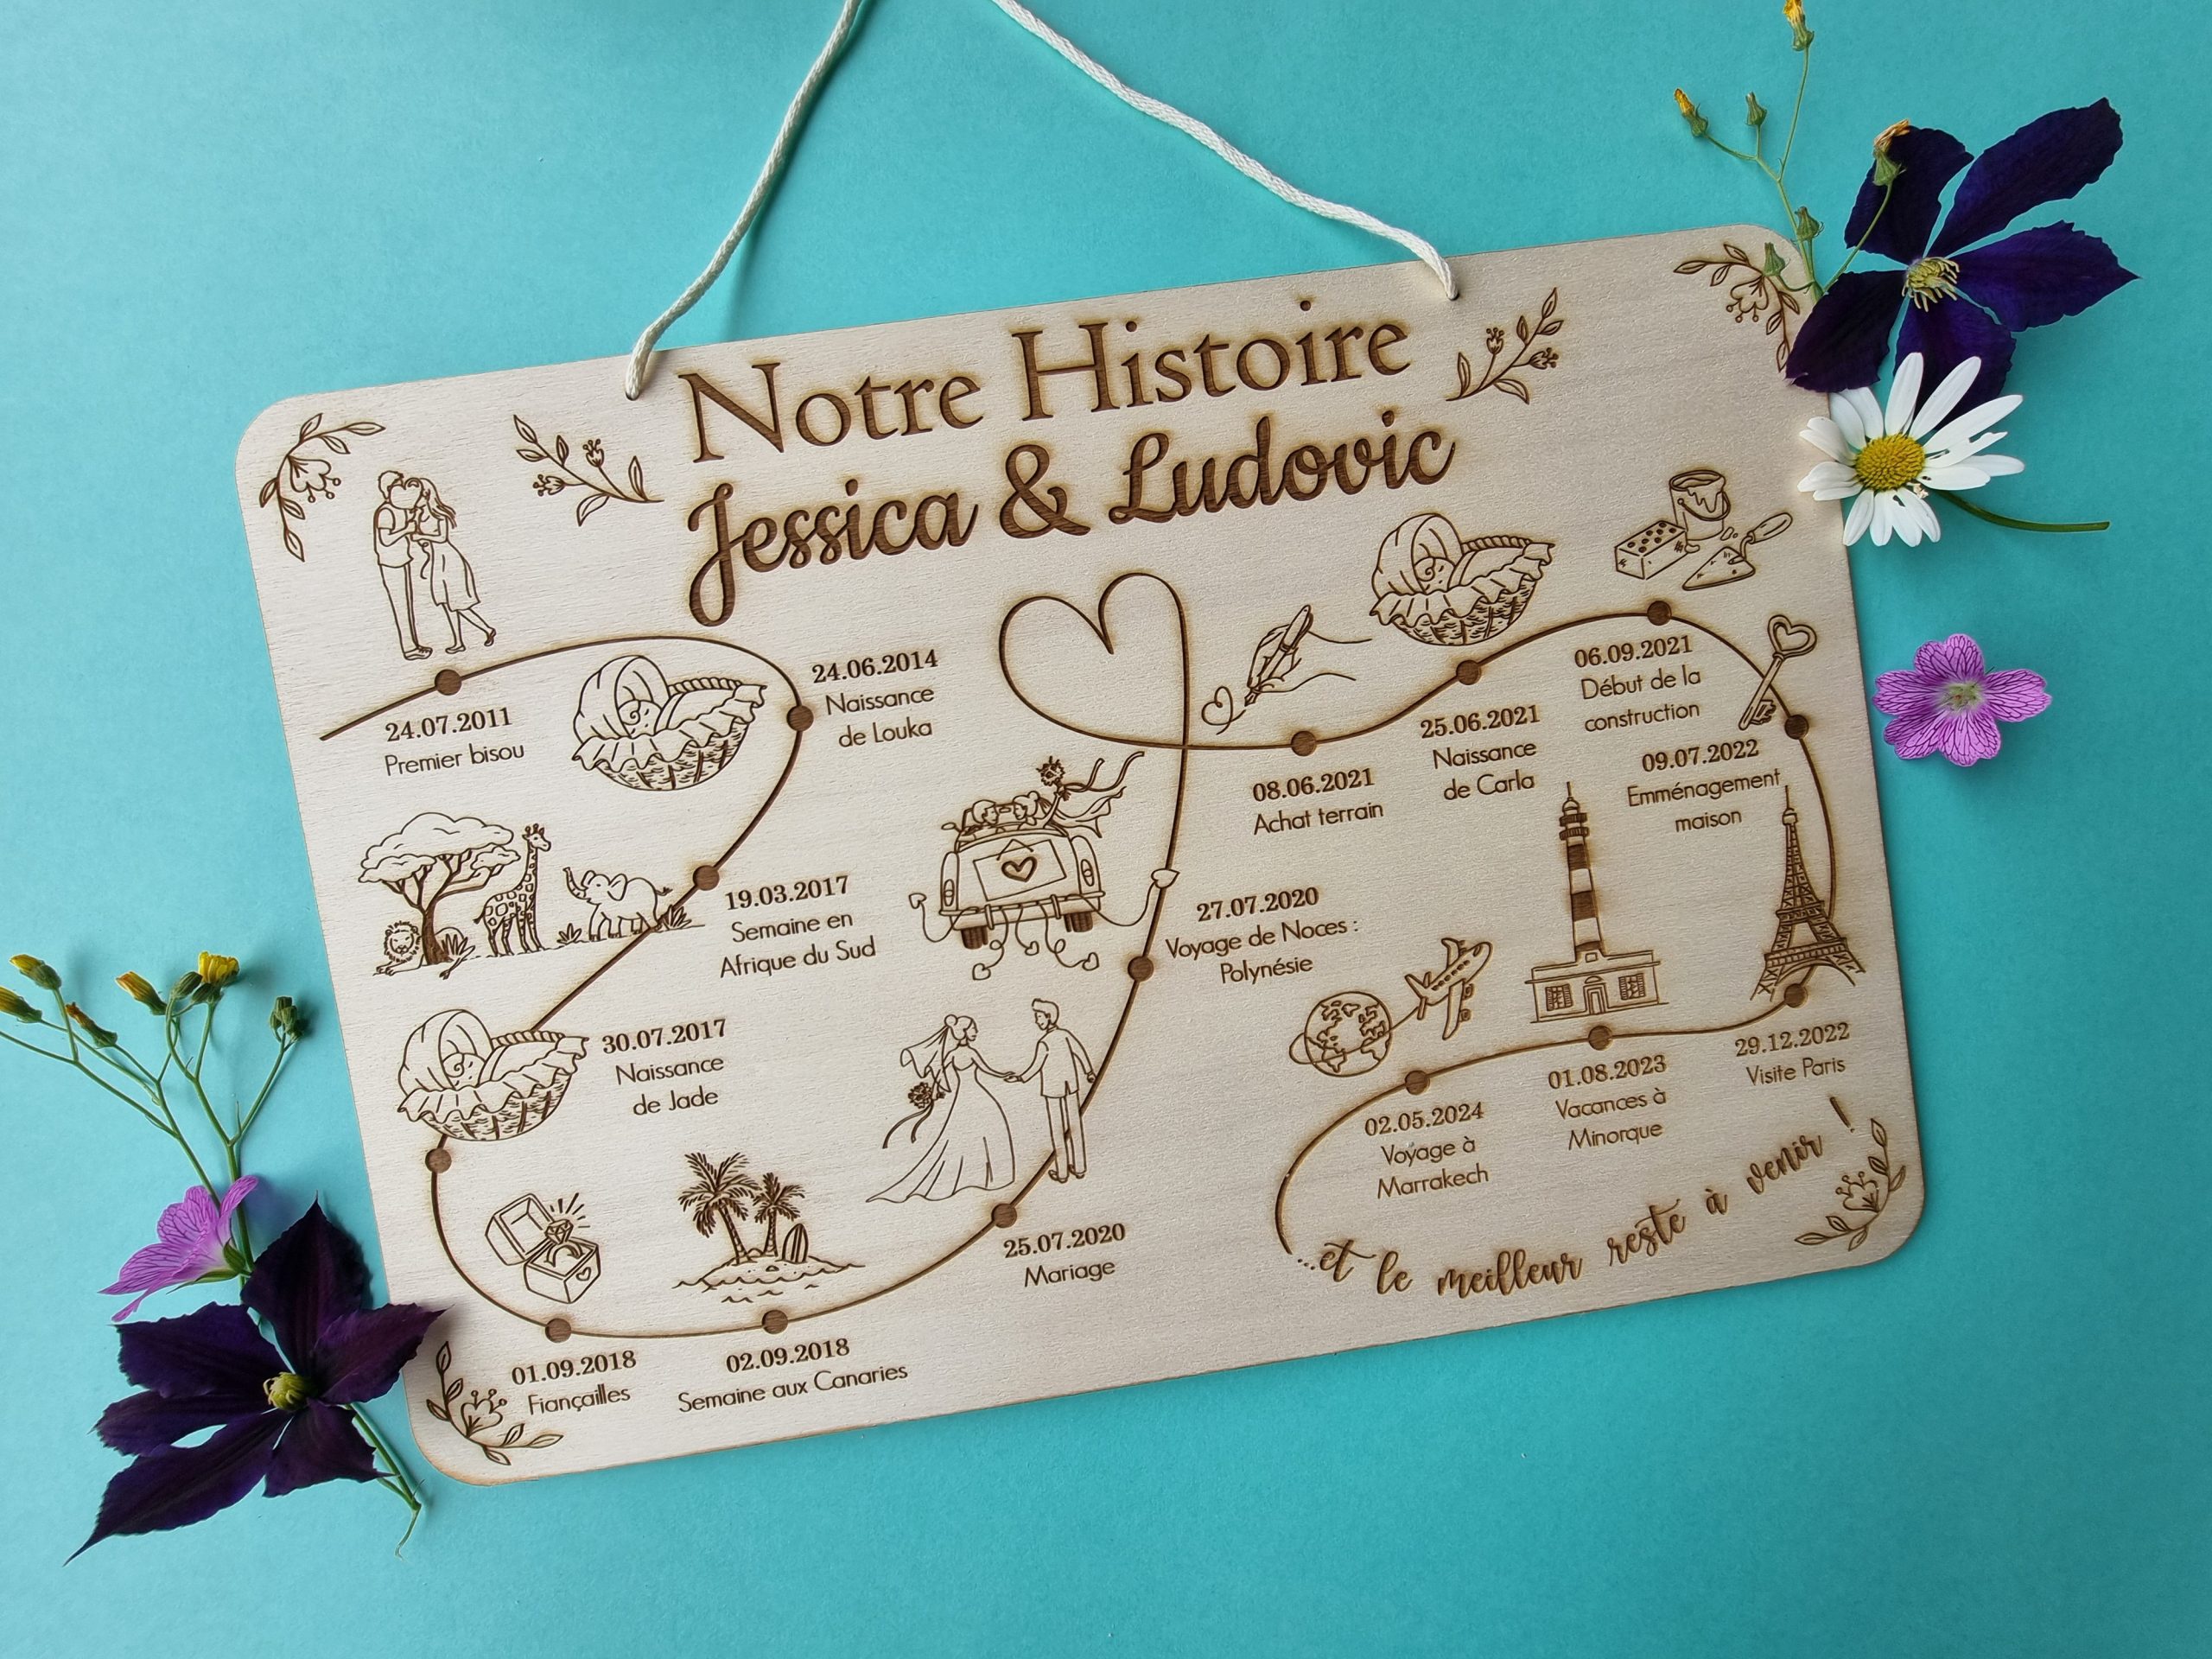 Notre Histoire
Jessica & Ludovic
24.07.2011
Premier bisou
24.06.2014
Naissance
de Louka
19.03.2017
Semaine en
Afrique du Sud
30.07.2017
Naissance
de Jade
01.09.2018
Fiançailles
02.09.2018
Semaine aux Canaries
25.07.2020
Mariage
27.07.2020
Voyage de Noces :
Polynésie
08.06.2021
Achat terrain
25.06.2021
Naissance
de Carla
06.09.2021
Début de la
construction
09.07.2022
Emménagement
maison
29.12.2022
Visite Paris
01.08.2023
Vacances à
Minorque
02.05.2024
Voyage à
Marrakech
...et le meilleur reste à venir !